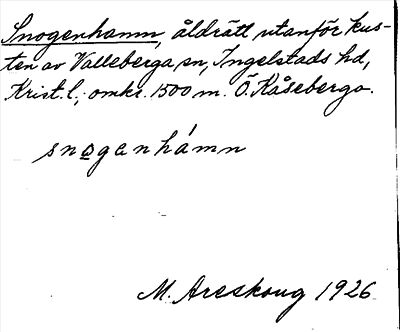 Snogenhamn, åldrätt utanför kus-
ten av Valleberga sn, Ingelstads hd,
Krist. l; omkr. 1500 m. Ö. Kåseberga.
snogenhámn
M. Areskoug 1926